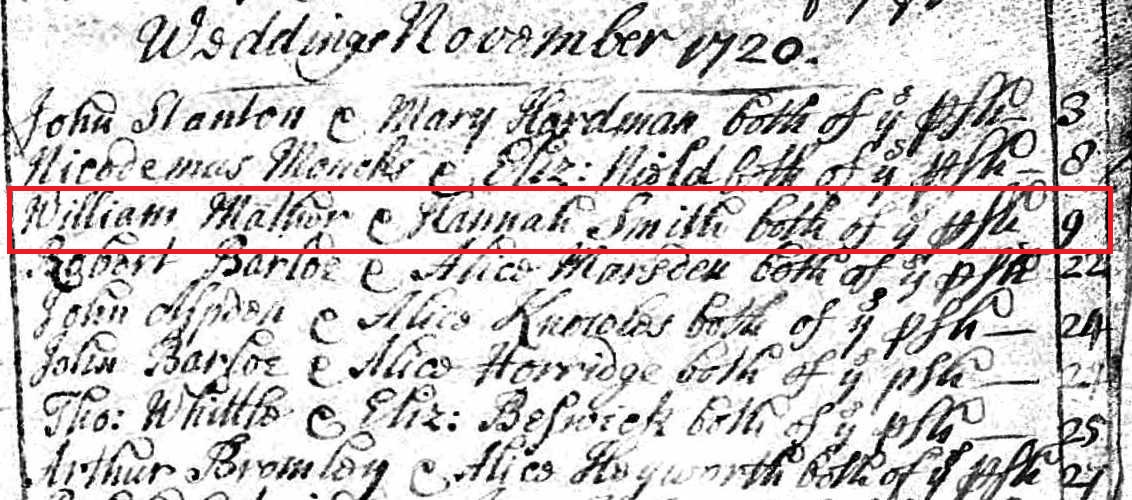 Weddings November 1720.
John Stanton & Mary Hardman both of ys psh 3
Nicodemas Moncks & Eliz: Nield both of ys psh — 8
William Mather & Hannah Smith both of ys psh 9
Robert Barloe & Alice Marsden both of ys psh 22
John Aspden & Alice Knowles both of ys psh — 24
John Barloe & Alice Horridge both of ys psh —
Tho: Whittle & Eliz: Beswick both of ys psh — 25
Arthur Bromley & Alice Heyworth both of ys psh 27